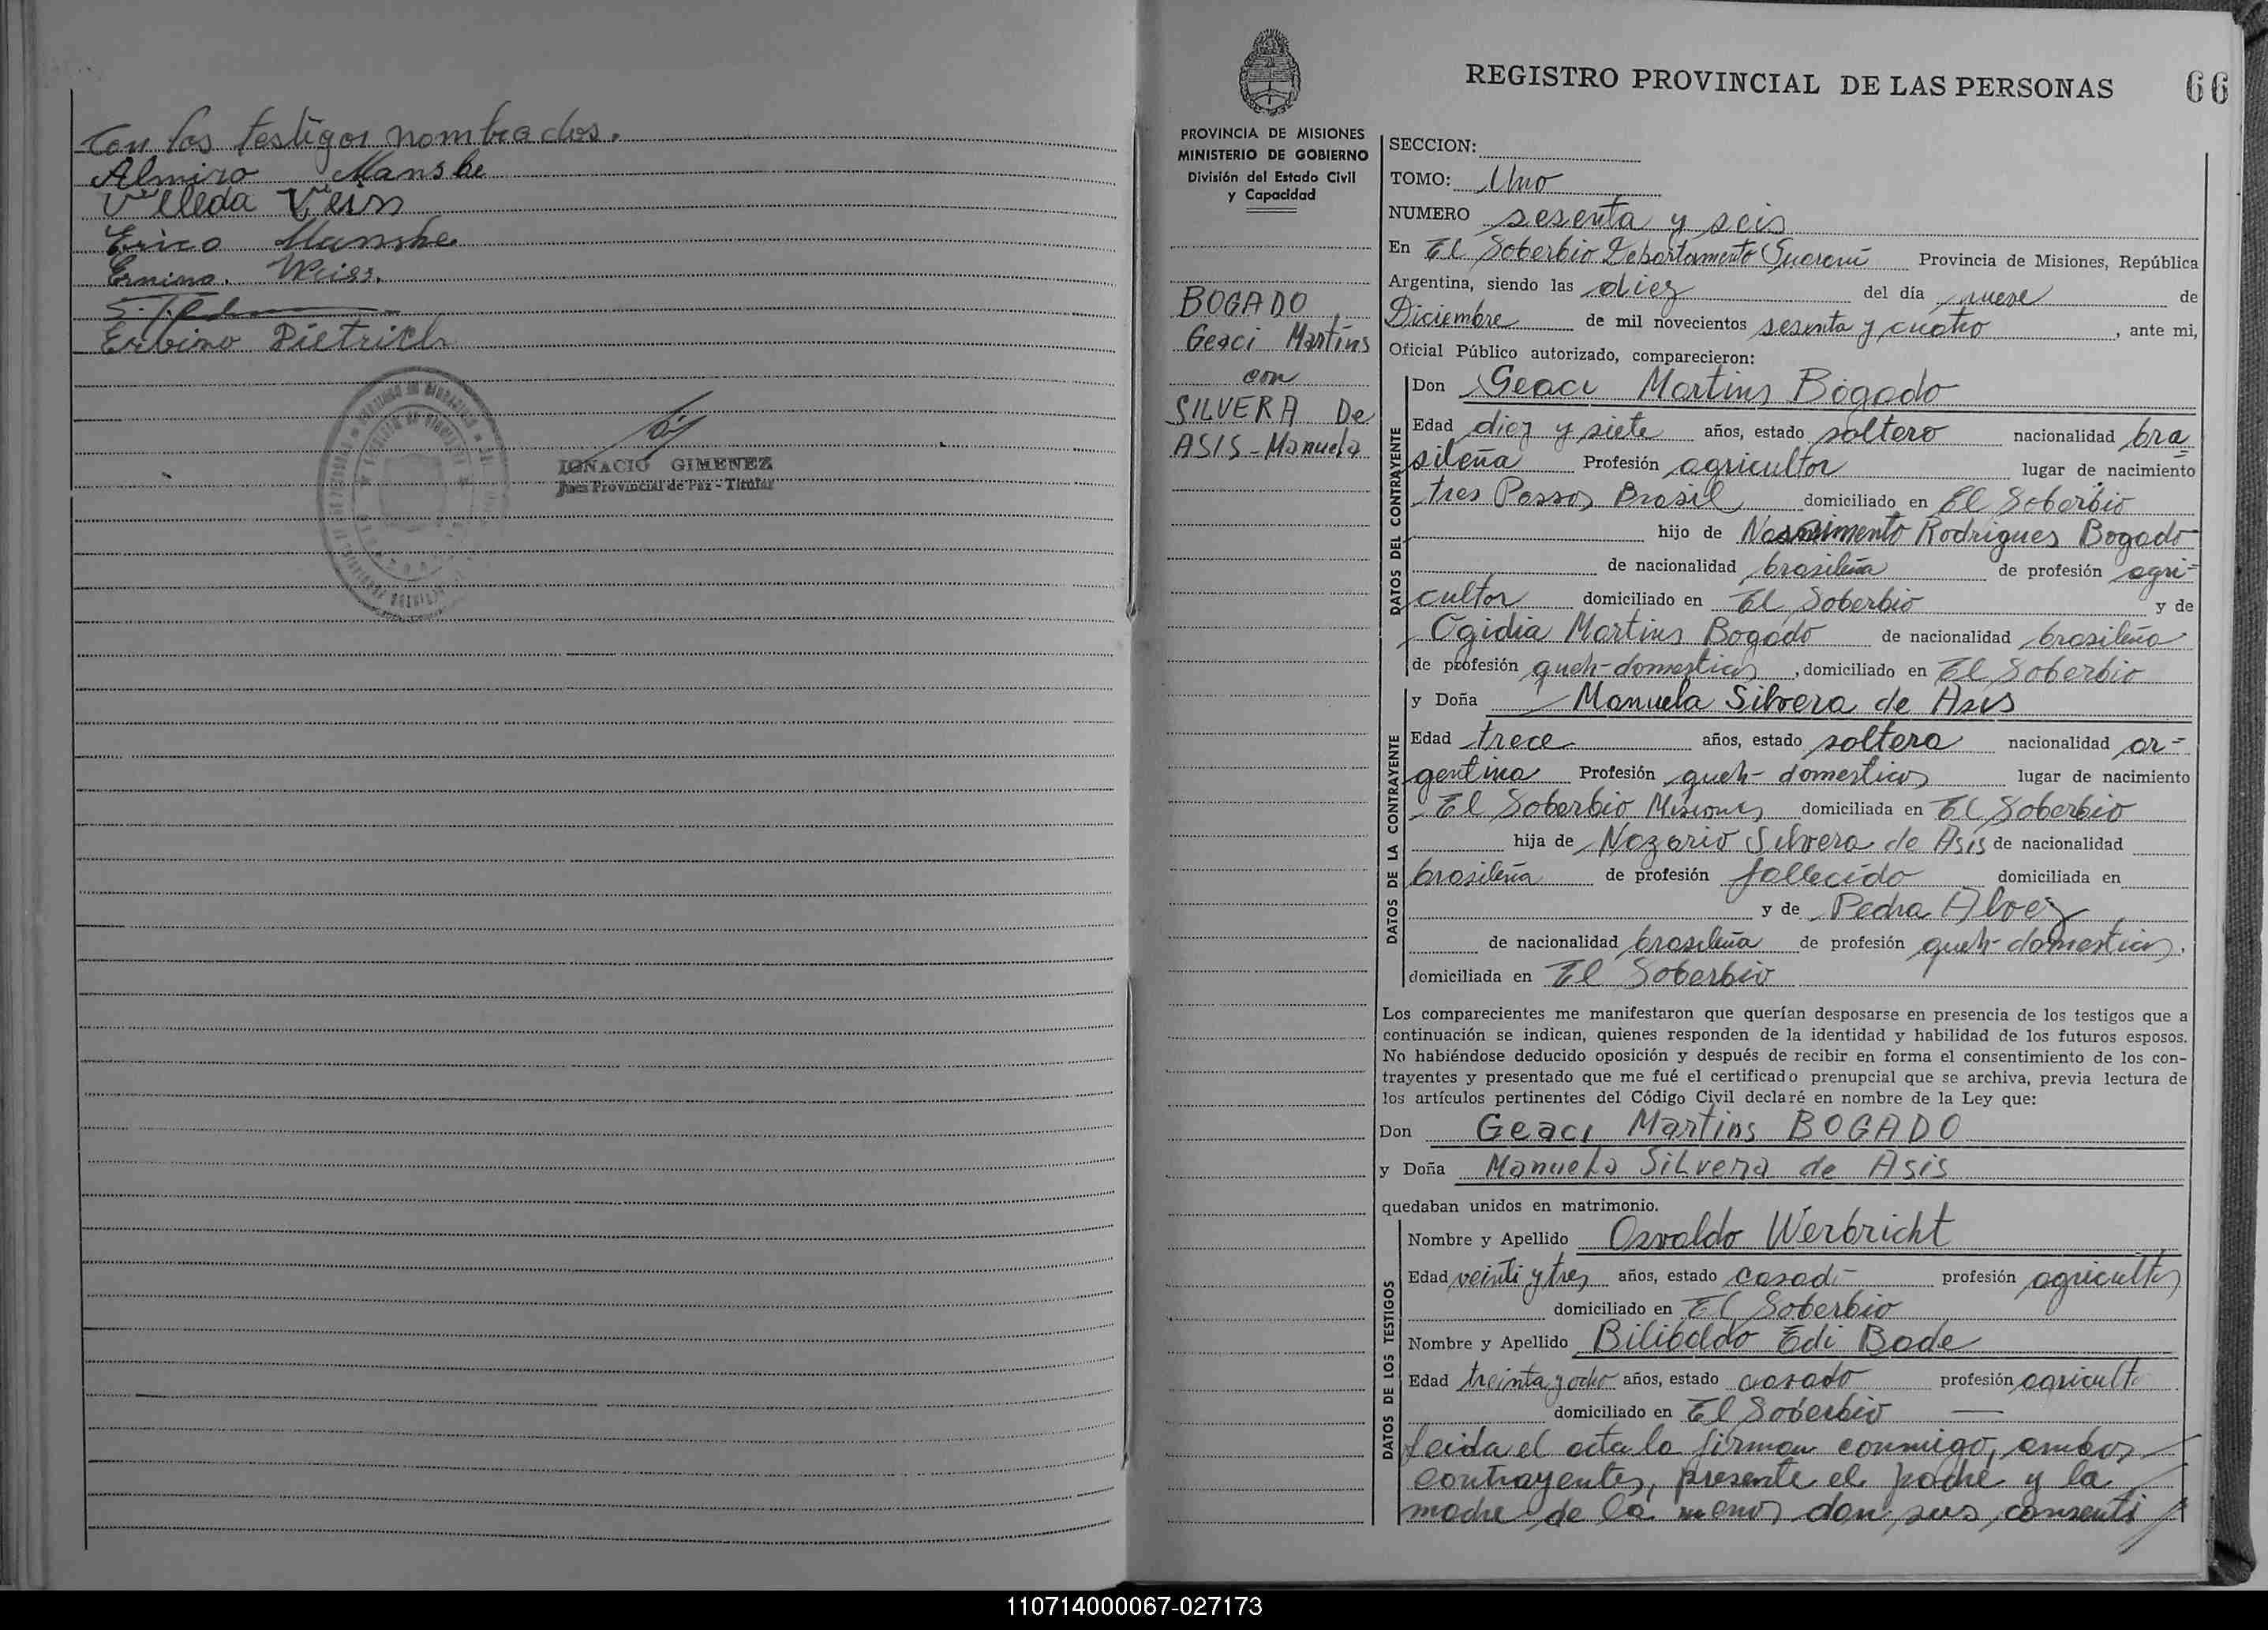 Con los testigos nombrados.
Almiro Manske
Velleda Veiss
Erico Manske
Ermino. Weiss.
Erbino Dietrich
IGNACIO GIMENEZ
Juez Provincial de Paz - Titular
REGISTRO PROVINCIAL DE LAS PERSONAS
66
PROVINCIA DE MISIONES
MINISTERIO DE GOBIERNO
División del Estado Civil
y Capacidad
BOGADO
Geaci Martins
con
SILVERA De
ASIS - Manuela
SECCION:
TOMO: Uno
NUMERO sesenta y seis
En El Soberbio Departamento Guarani Provincia de Misiones, República
Argentina, siendo las diez del día nueve de
Diciembre de mil novecientos sesenta y cuatro, ante mi,
Oficial Público autorizado, comparecieron:
DATOS DEL CONTRAYENTE
Don Geaci Martins Bogado
Edad diez y siete años, estado soltero nacionalidad bra
sileña Profesión agricultor lugar de nacimiento
tres Passos Brasil domiciliado en El Soberbio
hijo de Nascimento Rodrigues Bogado
de nacionalidad brasileña de profesión agri=
cultor domiciliado en El Soberbio y de
Ogidia Martins Bogado de nacionalidad brasileña
de profesión queh-domesticos, domiciliado en El Soberbio
DATOS DE LA CONTRAYENTE
y Doña Manuela Silvera de Asis
Edad trece años, estado soltera nacionalidad ar=
gentina Profesión queh- domesticos lugar de nacimiento
El Soberbio Misiones domiciliada en El Soberbio
hija de Nazario Silvera de Asis de nacionalidad
brasileña de profesión fallecido domiciliada en
y de Pedra Alvez
de nacionalidad brasileña de profesión queh-domesticos,
domiciliada en El Soberbio
Los comparecientes me manifestaron que querían desposarse en presencia de los testigos que a
continuación se indican, quienes responden de la identidad y habilidad de los futuros esposos.
No habiéndose deducido oposición y después de recibir en forma el consentimiento de los con-
trayentes y presentado que me fué el certificado prenupcial que se archiva, previa lectura de
los artículos pertinentes del Código Civil declaré en nombre de la Ley que:
Don Geaci Martins BOGADO
y Doña Manuela Silvera de Asis
quedaban unidos en matrimonio.
DATOS DE LOS TESTIGOS
Nombre y Apellido Osvaldo Werbricht
Edad veinti y tres años, estado casado profesión agricultor
domiciliado en El Soberbio
Nombre y Apellido Biliboldo Edi Bade
Edad treinta y ocho años, estado casado profesión agricult
domiciliado en El Soberbio
Leida el acta la firman conmigo, ambos
contrayentes, presente el padre y la
madre de la menor dan sus consenti
110714000067-027173